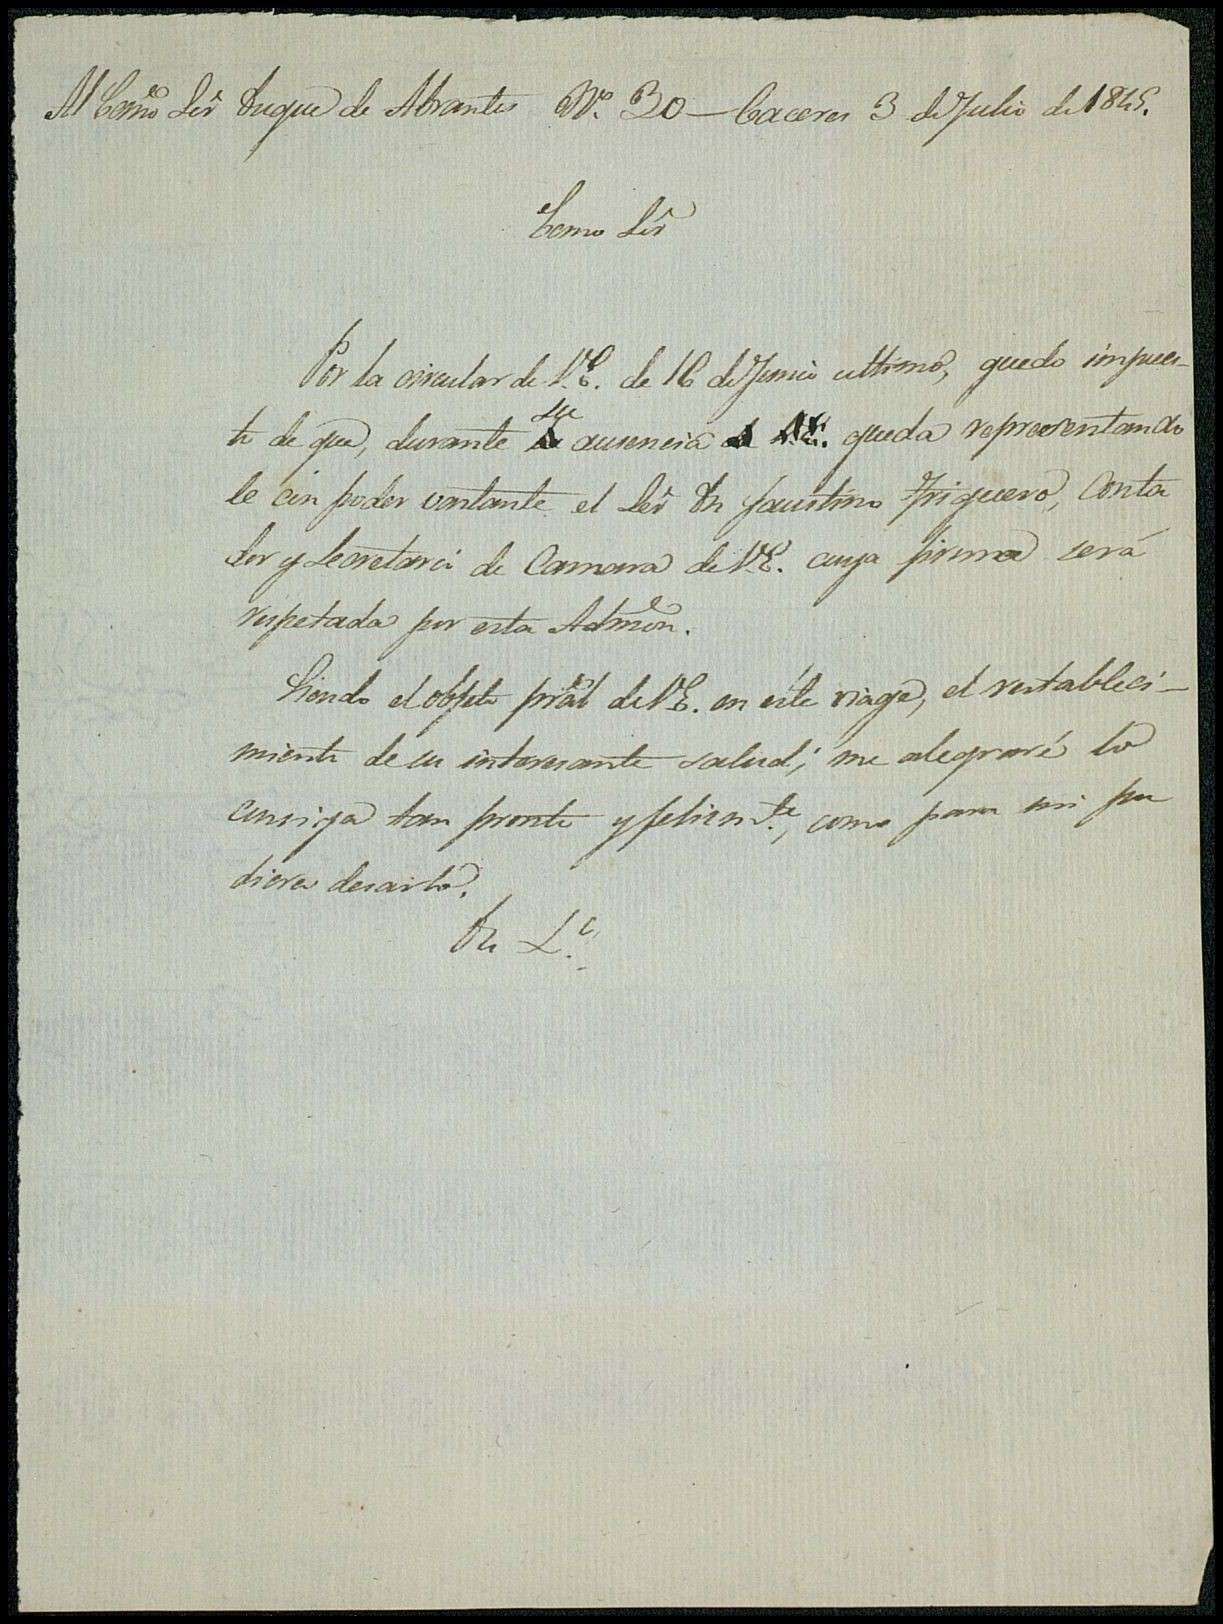 Al Excmo Sēr Duque de Abrantes Nº. 30 — Caceres 3 de Julio de 1845.
Excmo Sēr
Por la circular de V.E. de 16 de Junio ultimo, quedo impues-
to de que, durante su ausencia queda representando
le con poder bastante el Sēr Dn Faustino Triguero, Conta
dor y Secretario de Camara de V.E. cuya firma será
respetada por esta Admōn.
Siendo el objeto pral de V.E. en este viage, el restableci-
miento de su interesante salud; me alegraré lo
consiga tan pronto y felizmte., como para mi pu
diera desearlo.